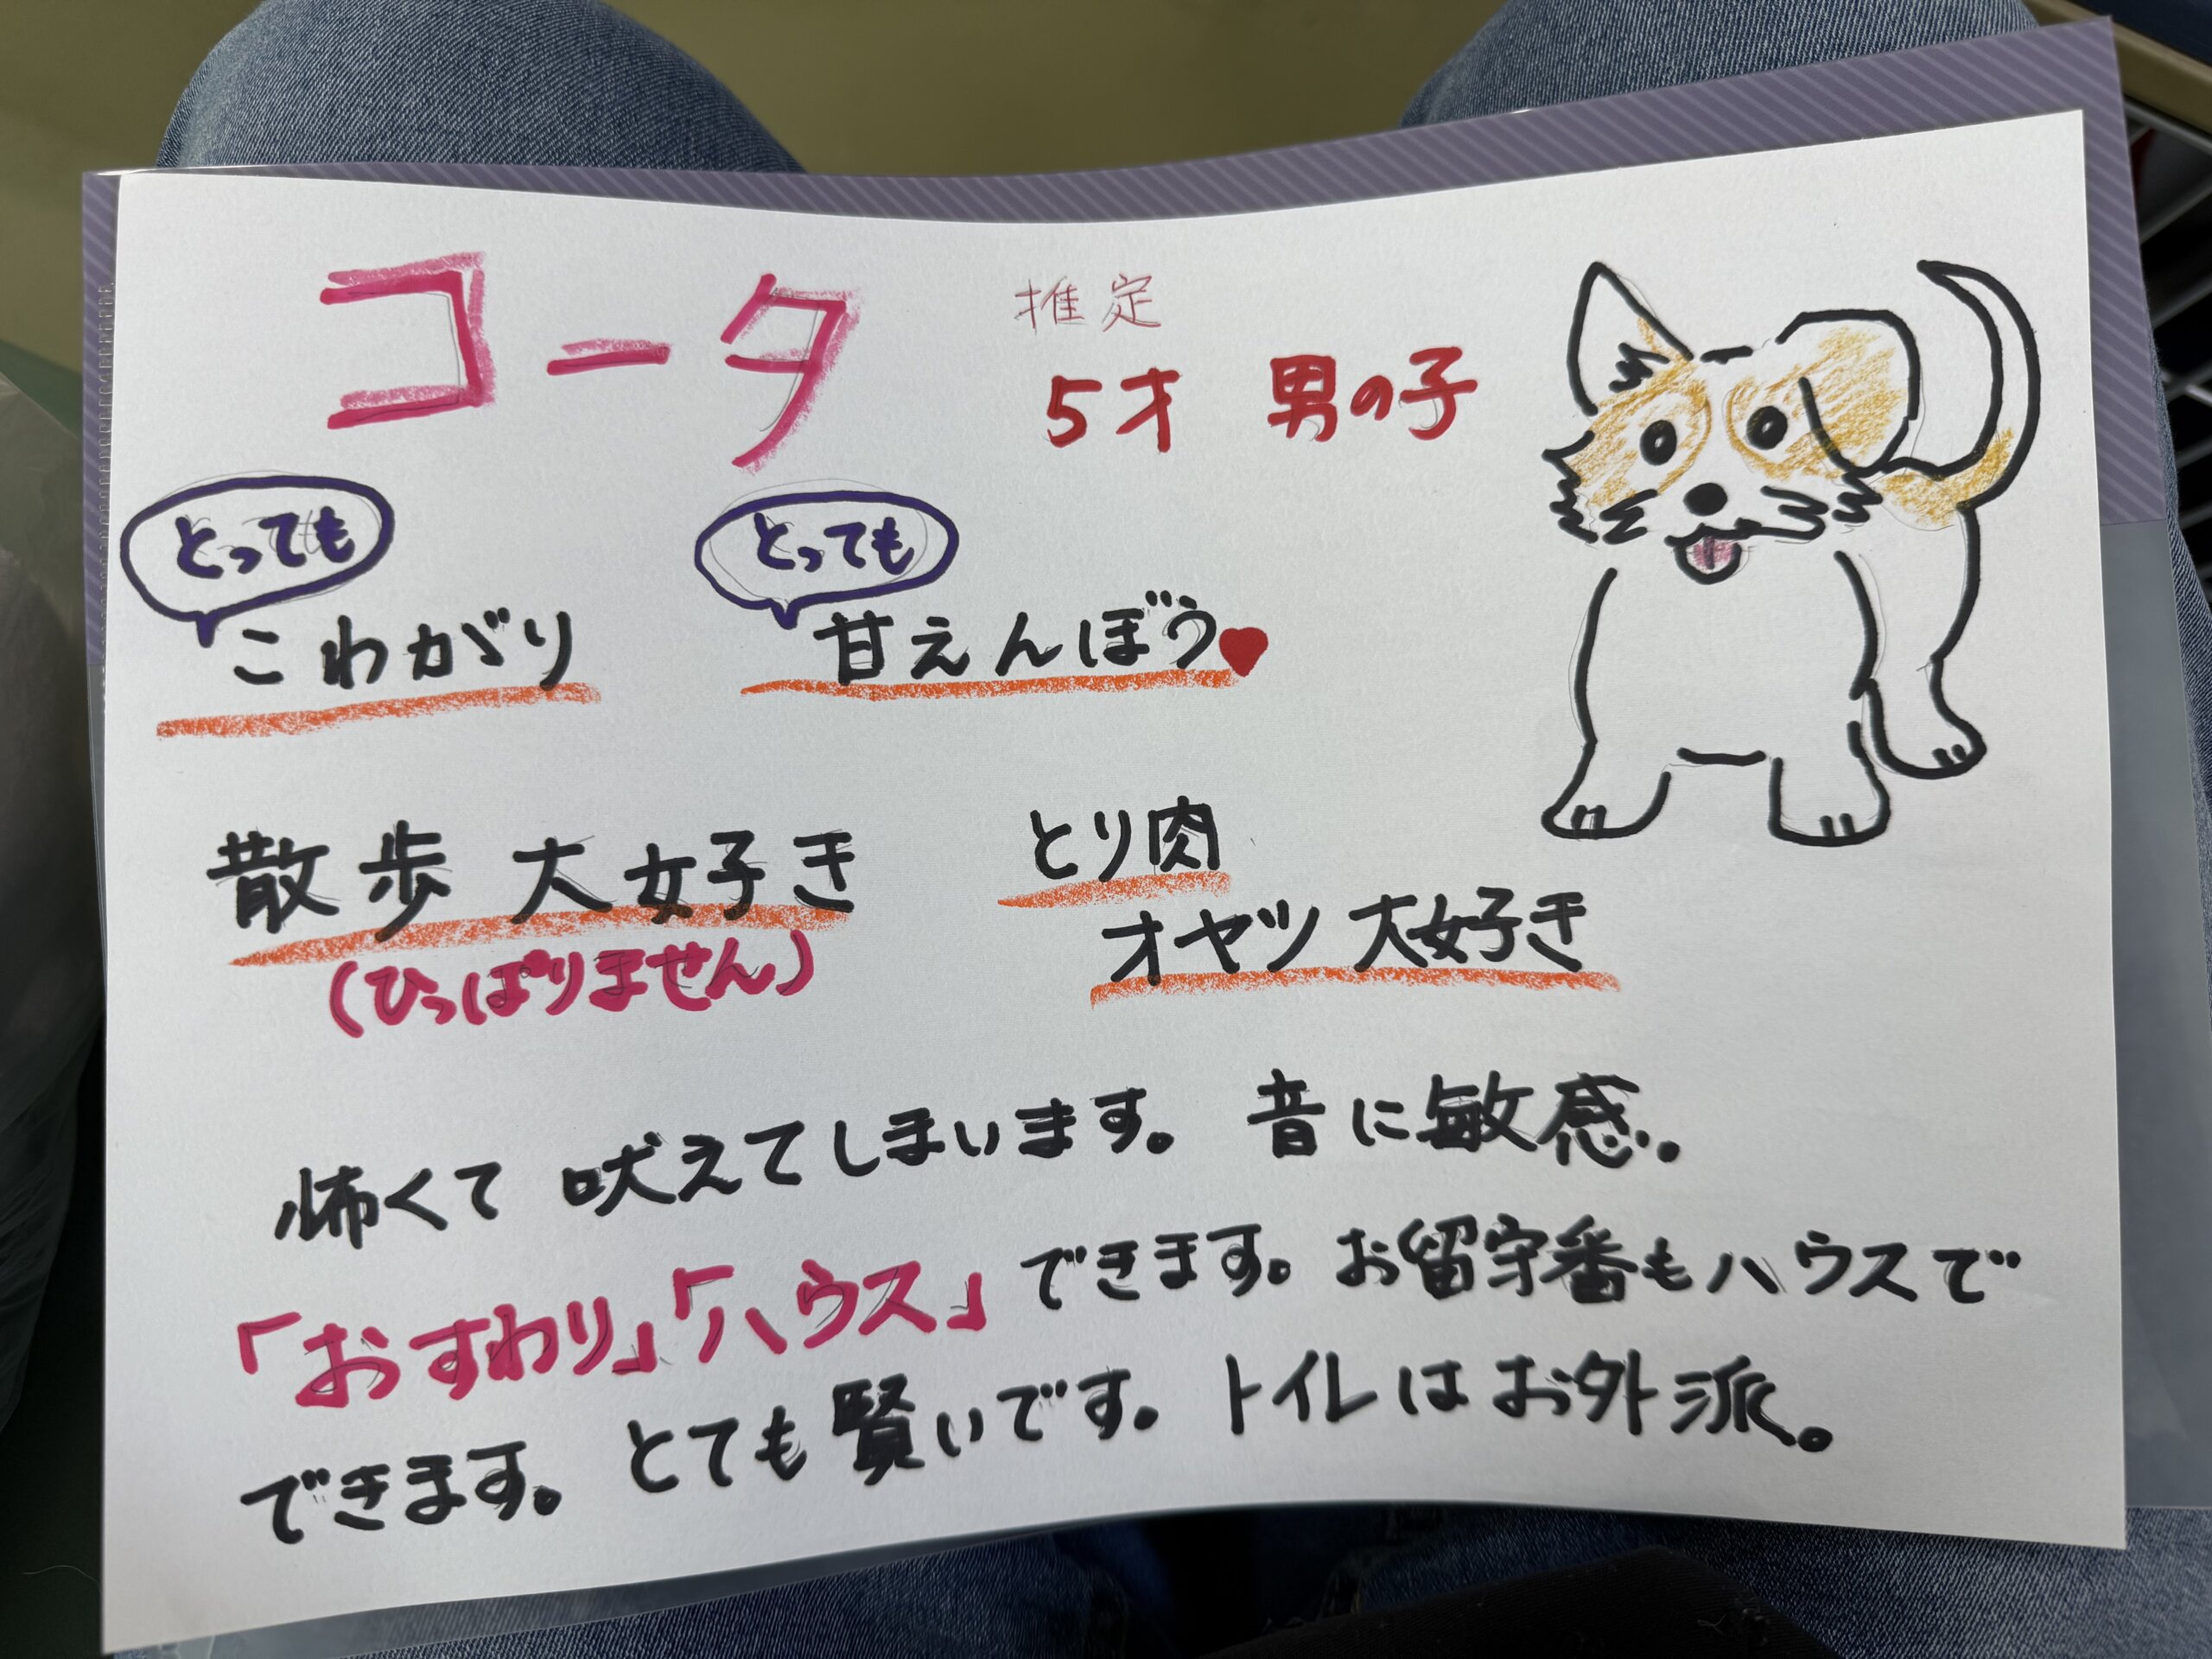 コータ
推定
5才 男の子
とっても
こわがり
とっても
甘えんぼう♥
散歩 大好き
(ひっぱりません)
とり肉
オヤツ 大好き
怖くて 吠えてしまいます。 音に敏感..
「おすわり」「ハウス」できます。お留守番もハウスで
できます。とても賢いです。トイレはお外派。